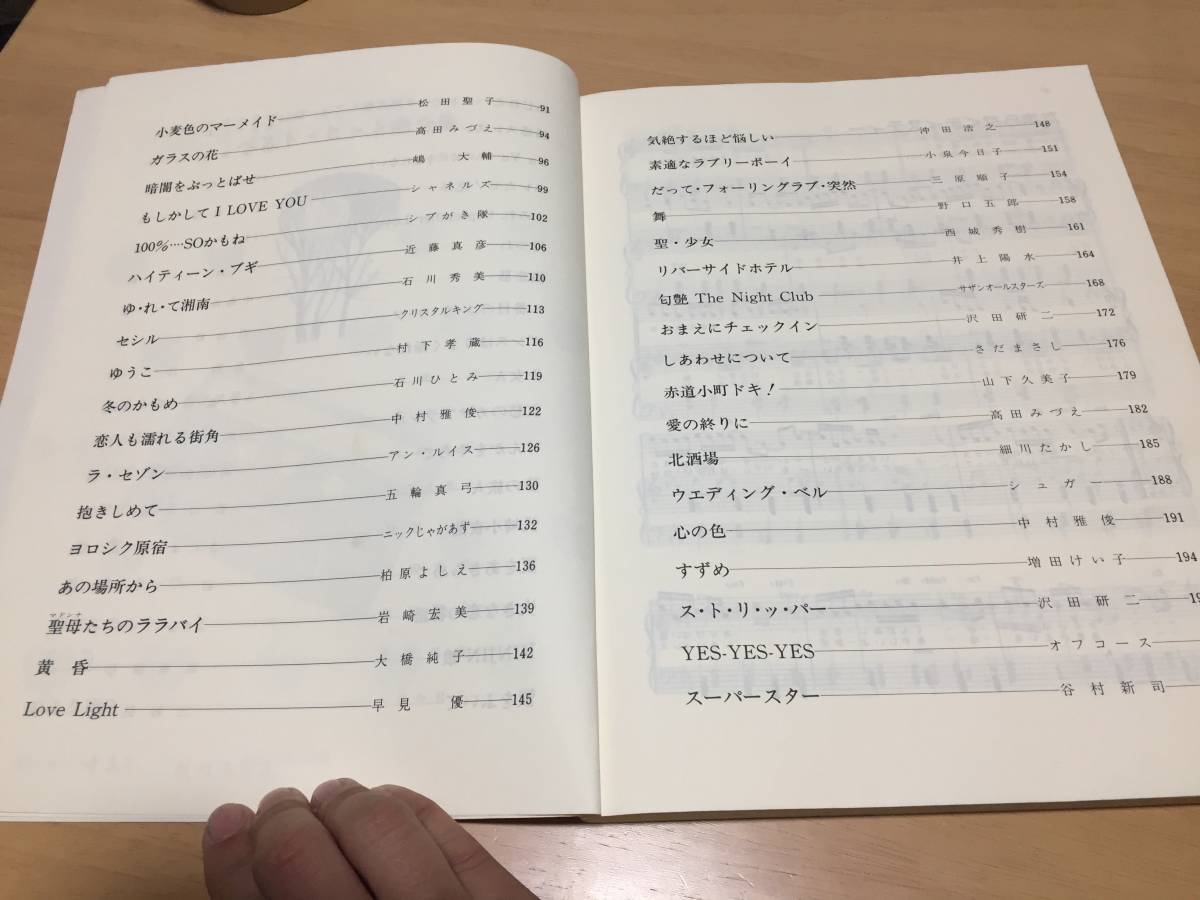 小麦色のマーメイド 松田聖子 91
ガラスの花 高田みづえ 94
暗闇をぶっとばせ 嶋大輔 96
もしかして I LOVE YOU シャネルズ 99
100%‥‥SOかもね シブがき隊 102
ハイティーン・ブギ 近藤真彦 106
ゆ・れ・て湘南 石川秀美 110
セシル クリスタルキング 113
ゆうこ 村下孝蔵 116
冬のかもめ 石川ひとみ 119
恋人も濡れる街角 中村雅俊 122
ラ・セゾン アン・ルイス 126
抱きしめて 五輪真弓 130
ヨロシク原宿 ニックじゃがあず 132
あの場所から 柏原よしえ 136
マドンナ
聖母たちのララバイ 岩崎宏美 139
黄昏 大橋純子 142
Love Light 早見優 145
気絶するほど悩しい 沖田浩之 148
素適なラブリーボーイ 小泉今日子 151
だって・フォーリングラブ・突然 三原順子 154
舞 野口五郎 158
聖・少女 西城秀樹 161
リバーサイドホテル 井上陽水 164
匂艶 The Night Club サザンオールスターズ 168
おまえにチェックイン 沢田研二 172
しあわせについて さだまさし 176
赤道小町ドキ! 山下久美子 179
愛の終りに 高田みづえ 182
北酒場 細川たかし 185
ウエディング・ベル シュガー 188
心の色 中村雅俊 191
すずめ 増田けい子 194
ス・ト・リ・ッ・パー 沢田研二
YES-YES-YES オフコース
スーパースター 谷村新司